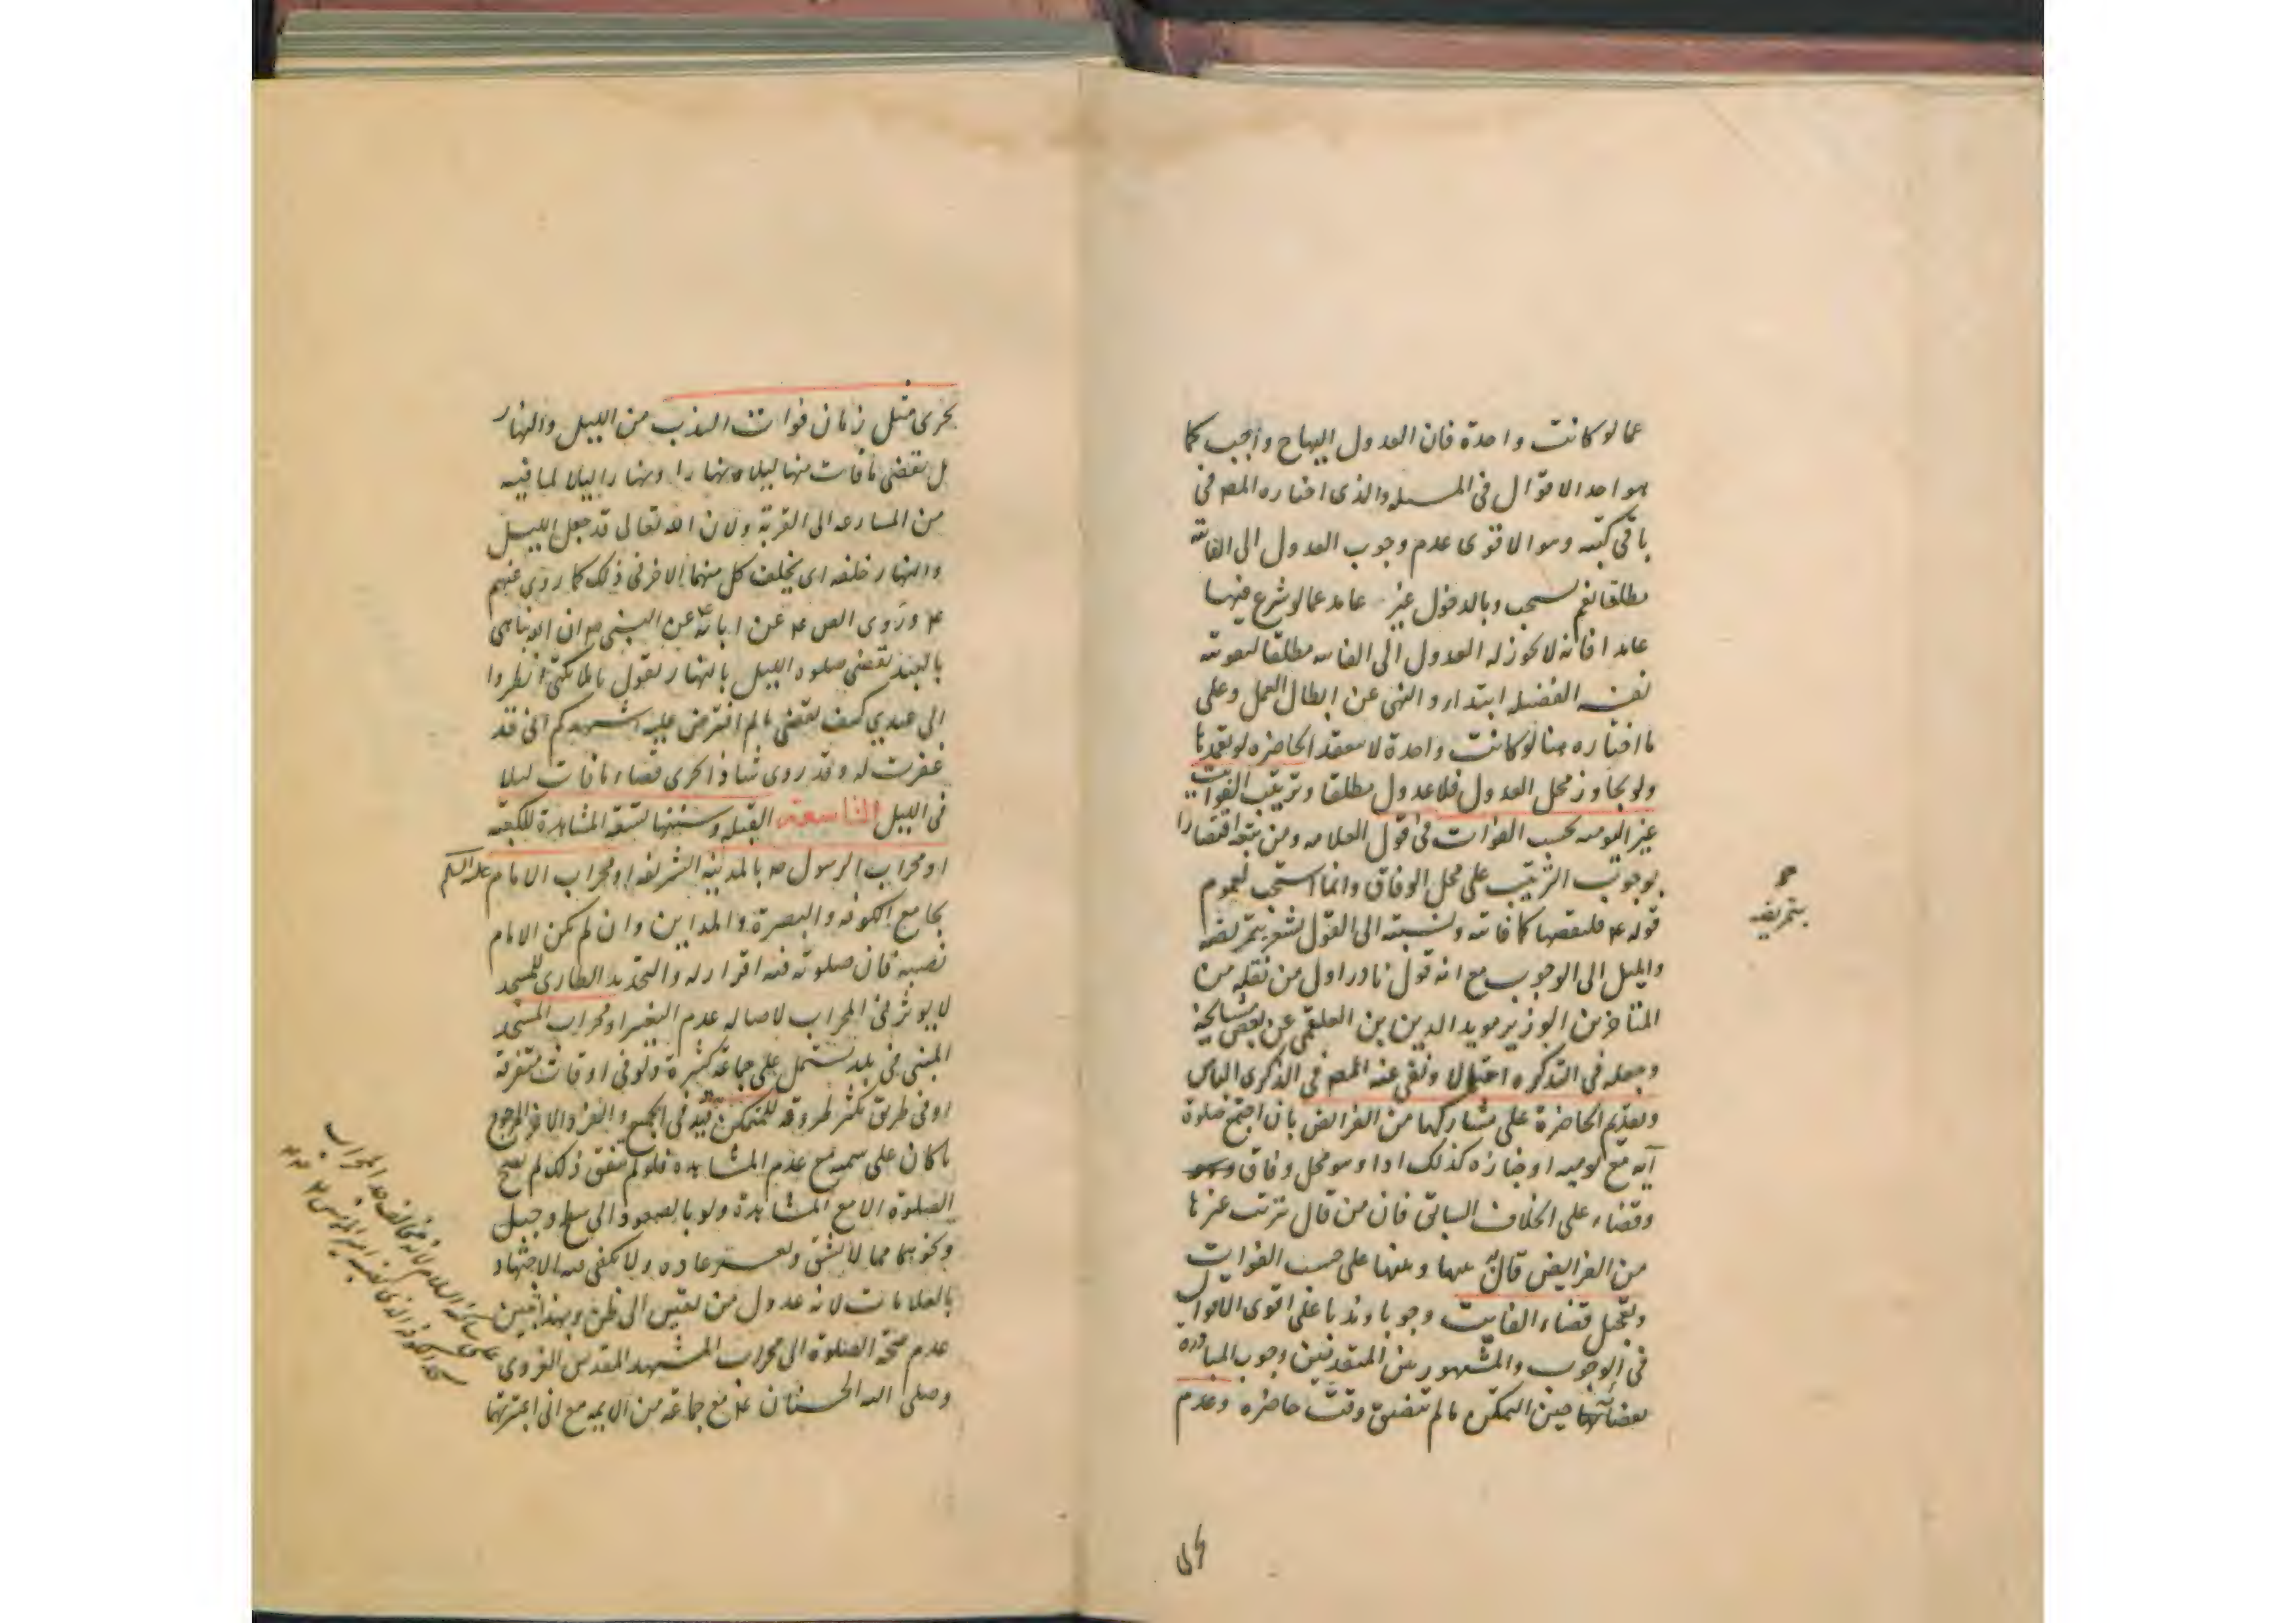 عما لو كانت واحدة فان العدول اليها ح واجب كما
هو احد الاقوال فى المسئله والذى اختاره المصـ فى
باقى كتبه وهو الاقوى عدم وجوب العدول الى الفائته
مطلقا نعم يستحب وبالدخول غير عامد عما لو شرع فيها
عامدا فانه لا يجوز له العدول الى الفائته مطلقا لتفويته
نفسه الفضيله ابتداء والنهى عن ابطال العمل وعلى
ما اختاره هنا لو كانت واحدة لا تنعقد الحاضره لو تعمدها
ولو تجاوز محل العدول فلا عدول مطلقا وترتيب الفوايت
غير اليوميه بحسب الفوات فى قول العلامه ومن تبعه اقتصارا
بوجوب الترتيب على محل الوفاق وانما استحب لعموم
قوله ع فليقضها كما فاتته ونسبته الى القول يشعر بتمريضه
والميل الى الوجوب مع انه قول نادر اول من نقله من
المتاخرين الوزير مويد الدين بن العلقمى عن بعض مشايخه
وجعله فى التذكره احتمالا ونفى عنه المصـ فى الذكرى الباس
وتقديم الحاضرة على مشاركها من الفرائض بان اجتمع صلوة
آيه مع يوميه او جنازه كذلك اداء وهو محل وفاق
وقضاء على الخلاف السابق فان من قال بترتب غيرها
من الفرايض قال به عليها ومنها على حسب الفوات
وتعجيل قضاء الفايت وجوبا وندبا على اقوى الاقوال
فى الوجوب والمشهور بين المتقدمين وجوب المبادره
بقضائها حين التمكن ما لم تتضيق وقت حاضره وعدم
بتمريضه
تحرى مثل زمان فوات الندب من الليل والنهار
بل يقضى ما فات منها ليلا نهارا ونهارا ليلا لما فيه
من المسارعه الى القربة ولان الله تعالى قد جعل الليل
والنهار خلفه اى يخلف كل منهما الاخر فى ذلك كما روى عنهم
ع وروى الصـ ع عن ابائه ع عن النبى ص ان الله يباهى
بالعبد يقضى صلوه الليل بالنهار يقول ملائكتى انظروا
الى عبدى كيف يقضى ما لم افترض عليه اشهدكم انى قد
غفرت له وقد روى شاذا تحرى قضاء ما فات ليلا
فى الليل التاسعة القبله وسننها ستة المشاهدة للكعبه
او محراب الرسول ص بالمدينه الشريفه او محراب الامام عليه السلم
بجامع الكوفه والبصرة والمداين وان لم يكن الامام
نصبه فان صلوته فيه اقرار له والتجديد الطارى للمسجد
لا يوثر فى المحراب لاصاله عدم التغير او محراب المسجد
المبنى فى بلد يشتمل على جماعة كثيرة ولو فى اوقات متفرقة
او فى طريق يكثر طروقه للمتمكن فيه فى الجميع والفرد الاخر المرجوع
ما كان على سمته مع عدم المشاهده فلو لم يتفق ذلك لم تصح
الصلوة الا مع المشاهدة ولو بالصعود الى سطح وجبل
ونحوهما مما لا يشق ويعسر عاده ولا يكفى فيه الاجتهاد
بالعلامات لانه عدول من يقين الى ظن وبهذا تبين
عدم صحة الصلوة الى محراب المشهد المقدس الغروى
وصلى اليه الحسنان ع مع جماعة من الايمه مع انى اعتبرتها